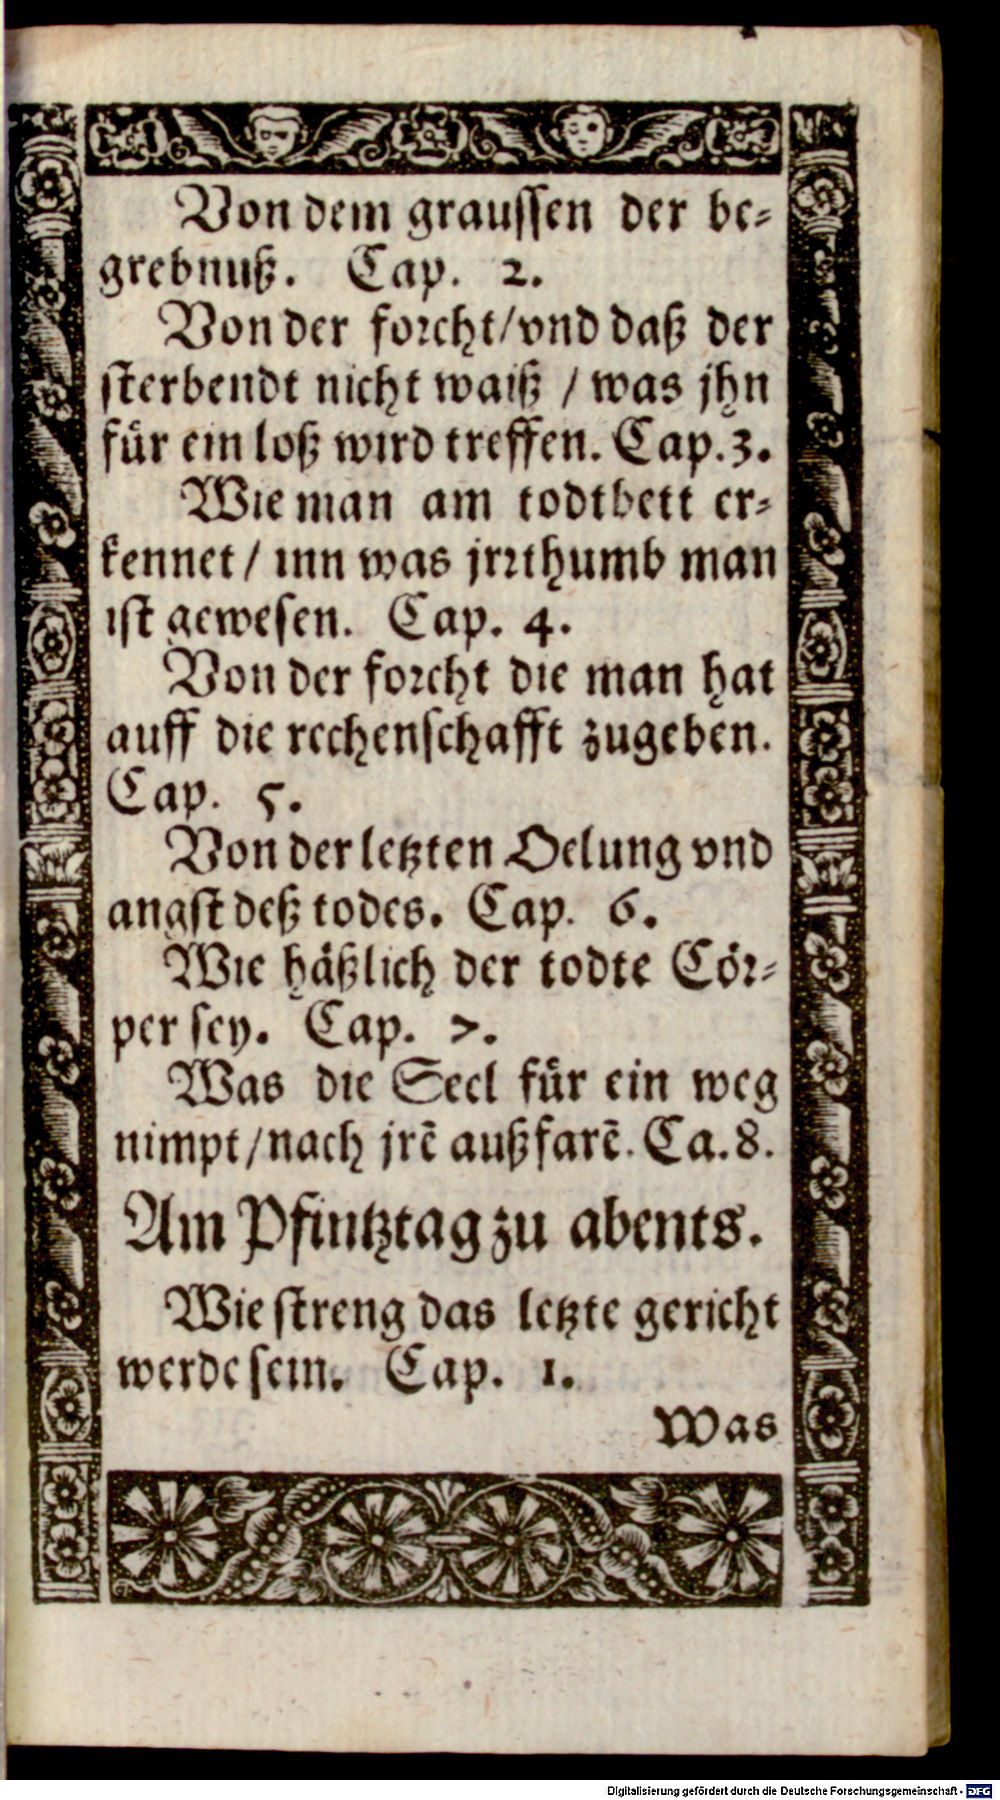 Von dem graussen der be-
grebnuß. Cap. 2.
Von der forcht/vnd daß der
sterbendt nicht waiß / was jhn
für ein loß wird treffen. Cap. 3.
Wie man am todtbett er-
kennet / inn was jrrthumb man
ist gewesen. Cap. 4.
Von der forcht die man hat
auff die rechenschafft zugeben.
Cap. 5.
Von der letzten Oelung vnd
angst deß todes. Cap. 6.
Wie häßlich der todte Cör-
per sey. Cap. 7.
Was die Seel für ein weg
nimpt/nach jrẽ außfarẽ. Ca. 8.
Am Pfintztag zu abents.
Wie streng das letzte gericht
werde sein. Cap. 1.
Was
Digitalisierung gefördert durch die Deutsche Forschungsgemeinschaft - DFG